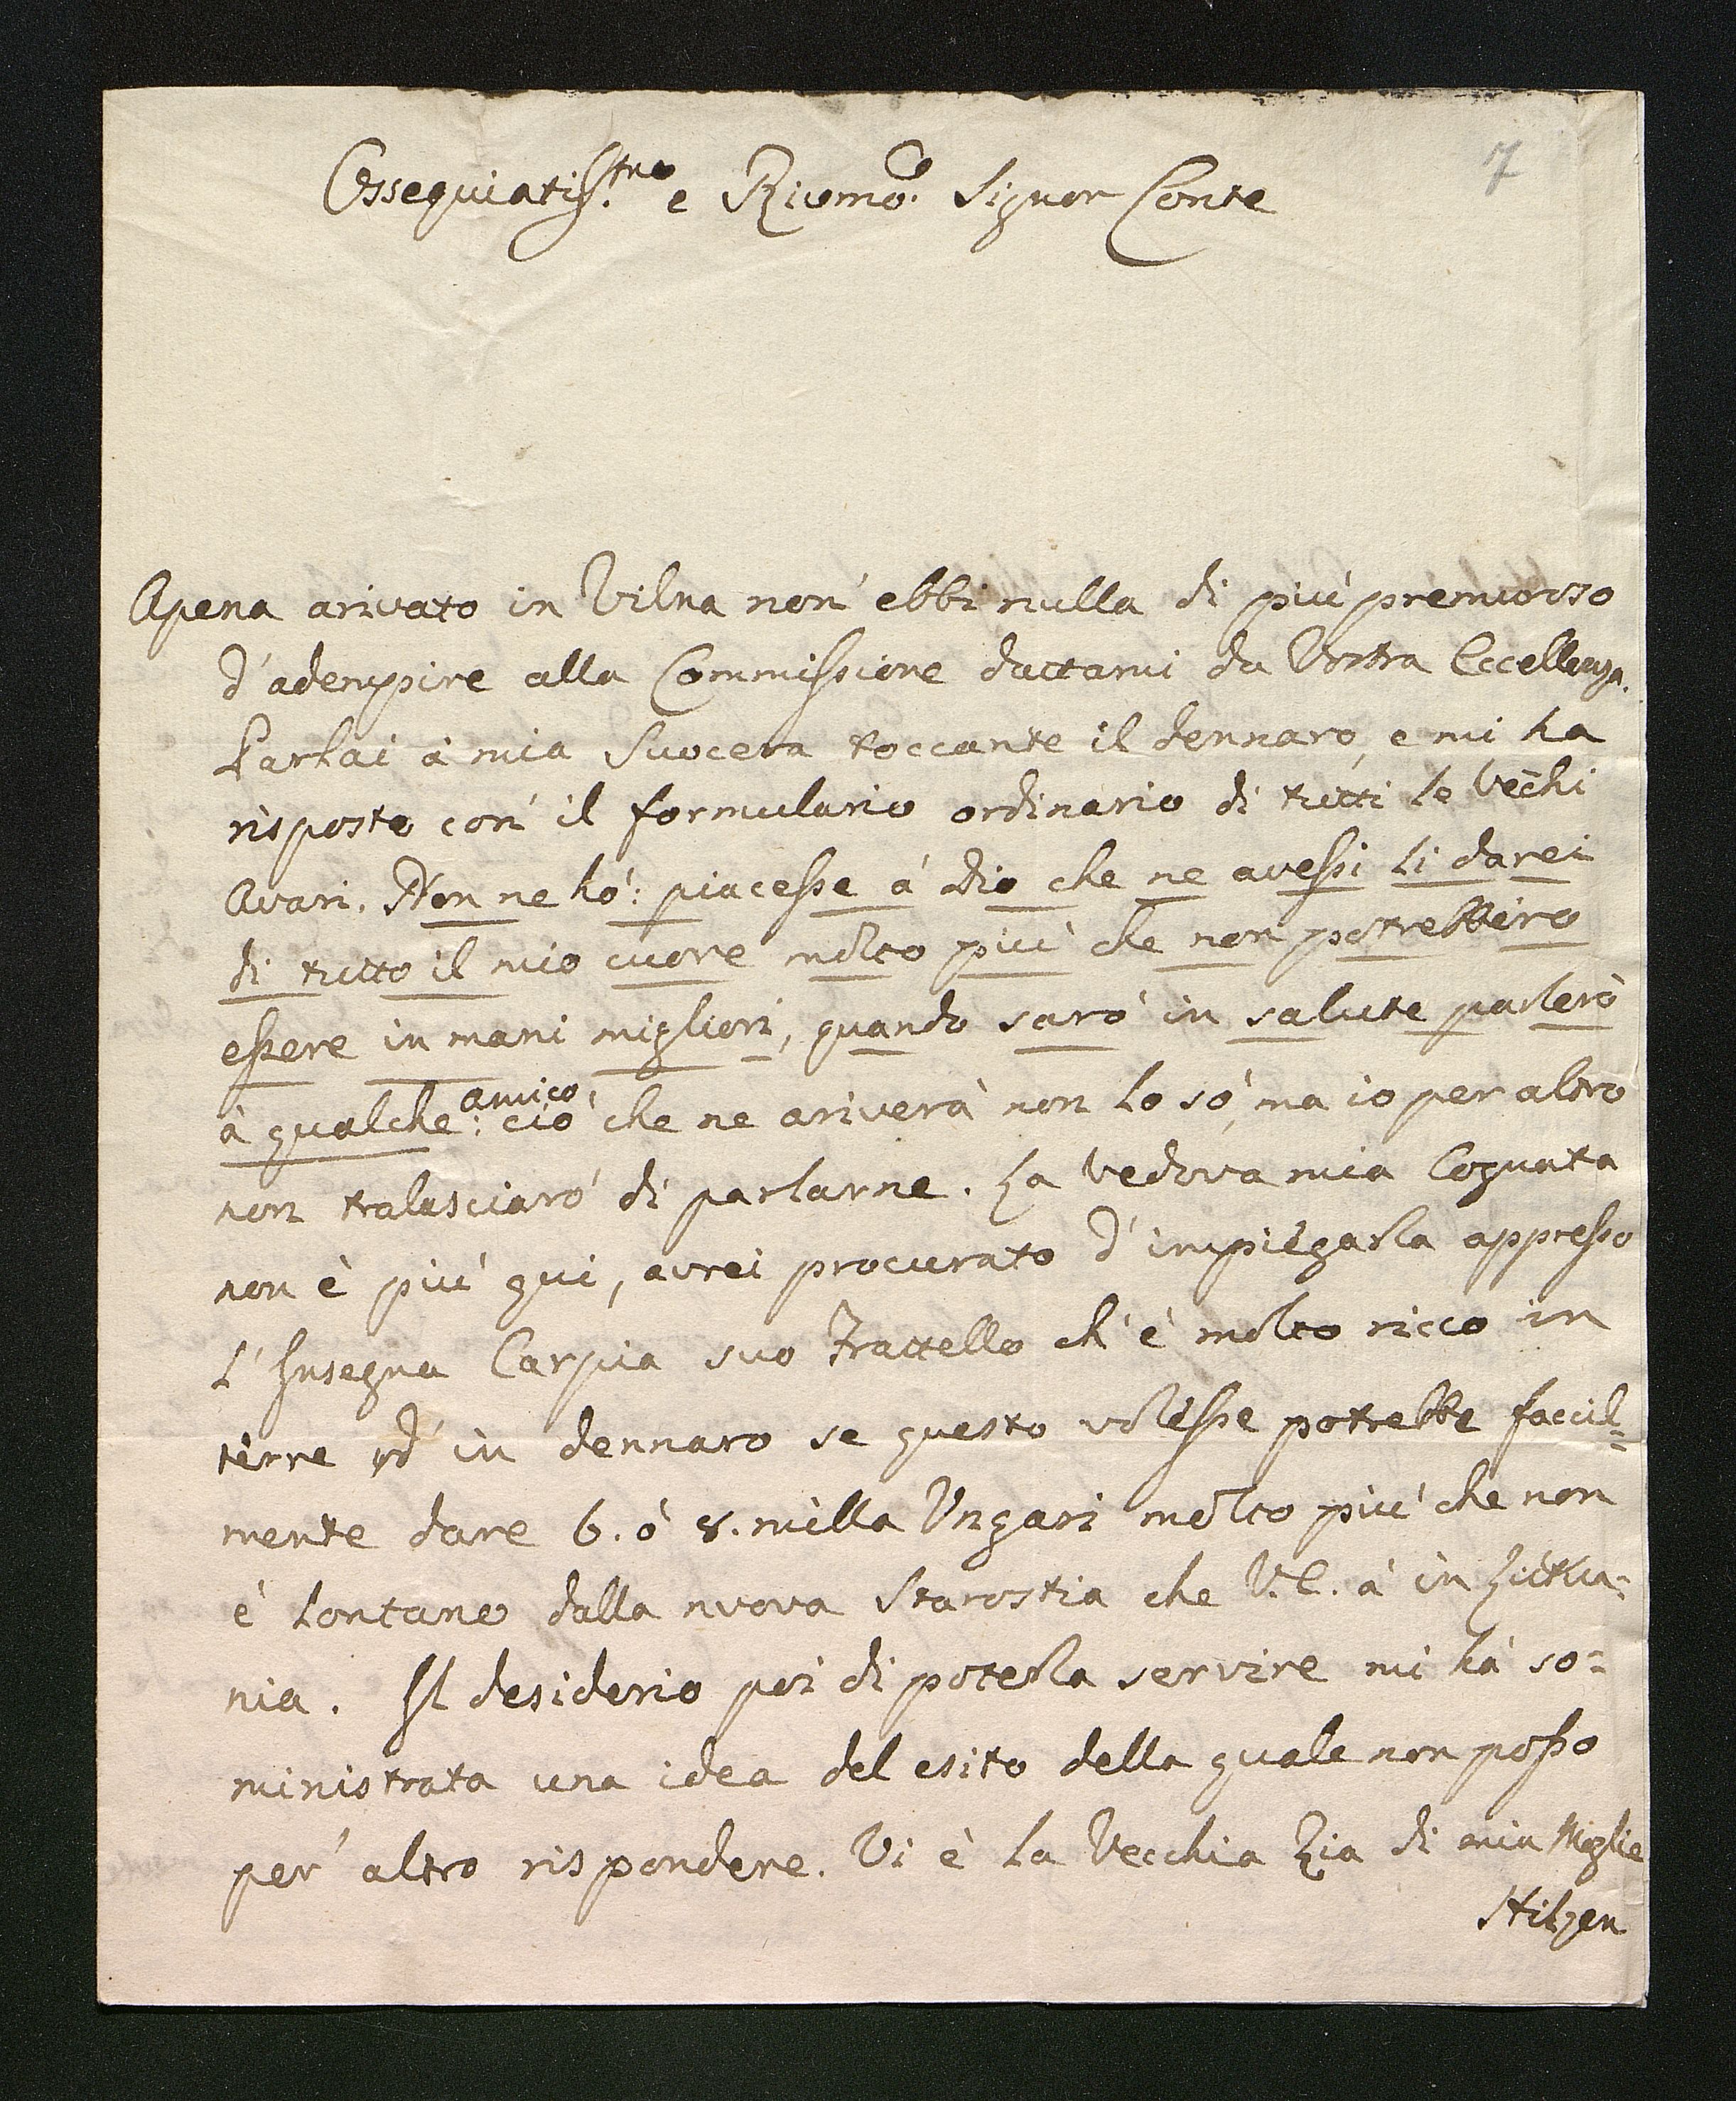 7
Ossequiatiss.mo e Riv.mo Signor Conte
Apena arivato in Vilna non' ebbi nulla di più premuroso
d'adempire alla Commissione dattami da Vostra Eccellenza.
Parlai à mia Suocera toccante il dennaro, e mi ha
risposto con' il formulario ordinario di tutti le Vechi
Avari. Non ne hó: piacesse á Dio che ne avessi li darei
di tutto il mio cuore molto più che non potrebbero
essere in mani migliori, quando saró in salute parlerò
à qualche amico: ció che ne ariverà non lo só, ma io per altro
non tralasciaró di parlarne. La Vedova mia Cognata
non è più qui, avrei procurato d'impiegarla appresso
l'Insegna Carpia suo Frattello ch'è molto ricco in
terre ed' in dennaro se questo volesse potrebbe faccil=
mente dare 6. ó 8. milla Ungari molto più che non
è lontano dalla nuova Starostia che V.E. à in Littua=
nia. Il desiderio poi di poterla servire mi há so=
ministrata una idea del esito della quale non posso
per' altro rispondere. Vi è la Vecchia Zia di mia Moglie
Hilzen